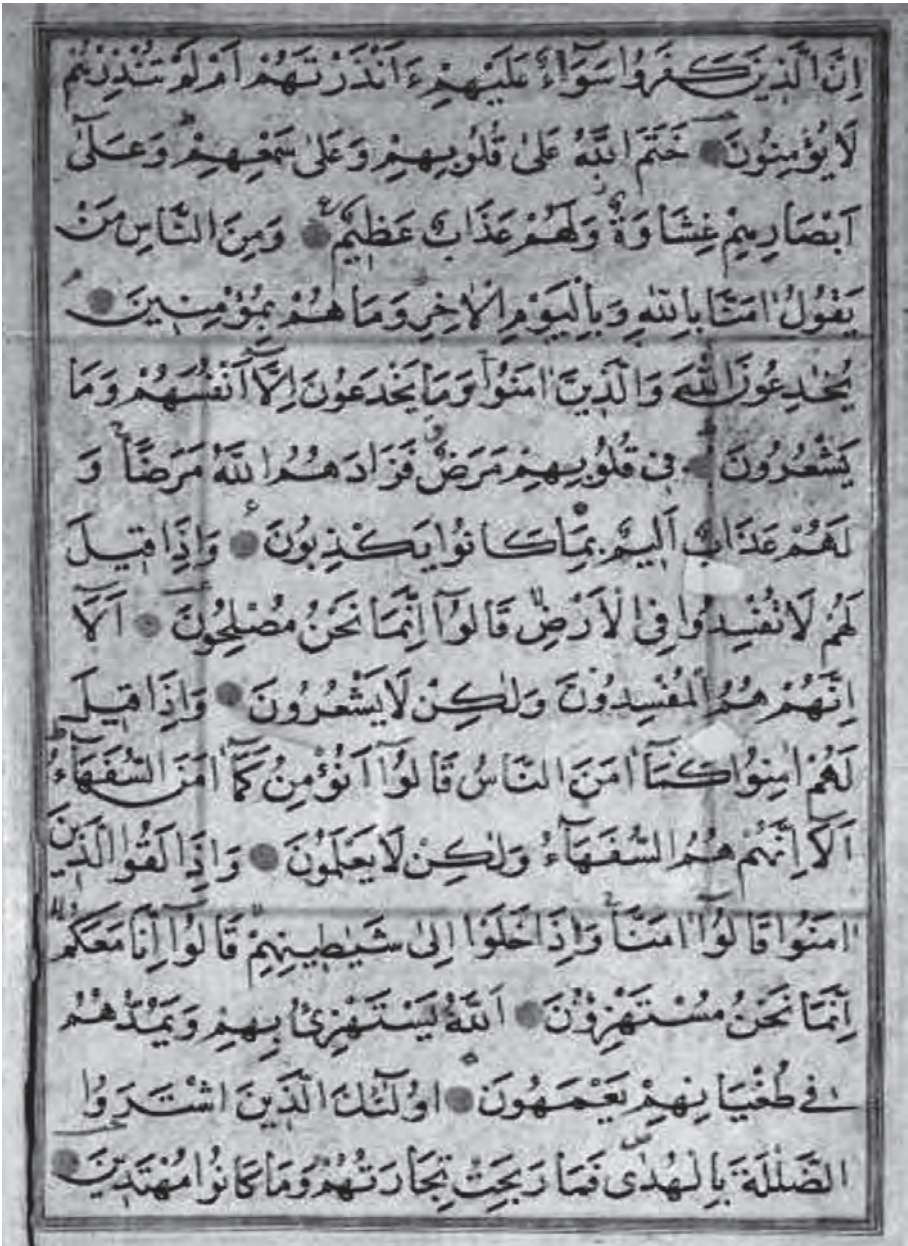 اِنَّ الَّذ۪ينَ كَفَرُوا سَوَٓاءٌ عَلَيْهِمْ ءَاَنْذَرْتَهُمْ اَمْ لَمْ تُنْذِرْهُمْ
لَا يُؤْمِنُونَ خَتَمَ اللّٰهُ عَلٰى قُلُوبِهِمْ وَعَلٰى سَمْعِهِمْ وَعَلٰٓى
اَبْصَارِهِمْ غِشَاوَةٌ وَلَهُمْ عَذَابٌ عَظ۪يمٌ وَمِنَ النَّاسِ مَنْ
يَقُولُ اٰمَنَّا بِاللّٰهِ وَبِالْيَوْمِ الْاٰخِرِ وَمَا هُمْ بِمُؤْمِن۪ينَ
يُخَادِعُونَ اللّٰهَ وَالَّذ۪ينَ اٰمَنُوا وَمَا يَخْدَعُونَ اِلَّٓا اَنْفُسَهُمْ وَمَا
يَشْعُرُونَ ف۪ي قُلُوبِهِمْ مَرَضٌ فَزَادَهُمُ اللّٰهُ مَرَضًا وَ
لَهُمْ عَذَابٌ اَل۪يمٌ بِمَا كَانُوا يَكْذِبُونَ وَاِذَا ق۪يلَ
لَهُمْ لَا تُفْسِدُوا فِي الْاَرْضِ قَالُٓوا اِنَّمَا نَحْنُ مُصْلِحُونَ اَلَٓا
اِنَّهُمْ هُمُ الْمُفْسِدُونَ وَلٰكِنْ لَا يَشْعُرُونَ وَاِذَا ق۪يلَ
لَهُمْ اٰمِنُوا كَمَٓا اٰمَنَ النَّاسُ قَالُٓوا اَنُؤْمِنُ كَمَٓا اٰمَنَ السُّفَهَٓاءُ
اَلَٓا اِنَّهُمْ هُمُ السُّفَهَٓاءُ وَلٰكِنْ لَا يَعْلَمُونَ وَاِذَا لَقُوا الَّذ۪ينَ
اٰمَنُوا قَالُٓوا اٰمَنَّا وَاِذَا خَلَوْا اِلٰى شَيَاط۪ينِهِمْ قَالُٓوا اِنَّا مَعَكُمْ
اِنَّمَا نَحْنُ مُسْتَهْزِؤُنَ اَللّٰهُ يَسْتَهْزِئُ بِهِمْ وَيَمُدُّهُمْ
ف۪ي طُغْيَانِهِمْ يَعْمَهُونَ اُو۬لٰٓئِكَ الَّذ۪ينَ اشْتَرَوُا
الضَّلٰلَةَ بِالْهُدٰى فَمَا رَبِحَتْ تِجَارَتُهُمْ وَمَا كَانُوا مُهْتَد۪ينَ